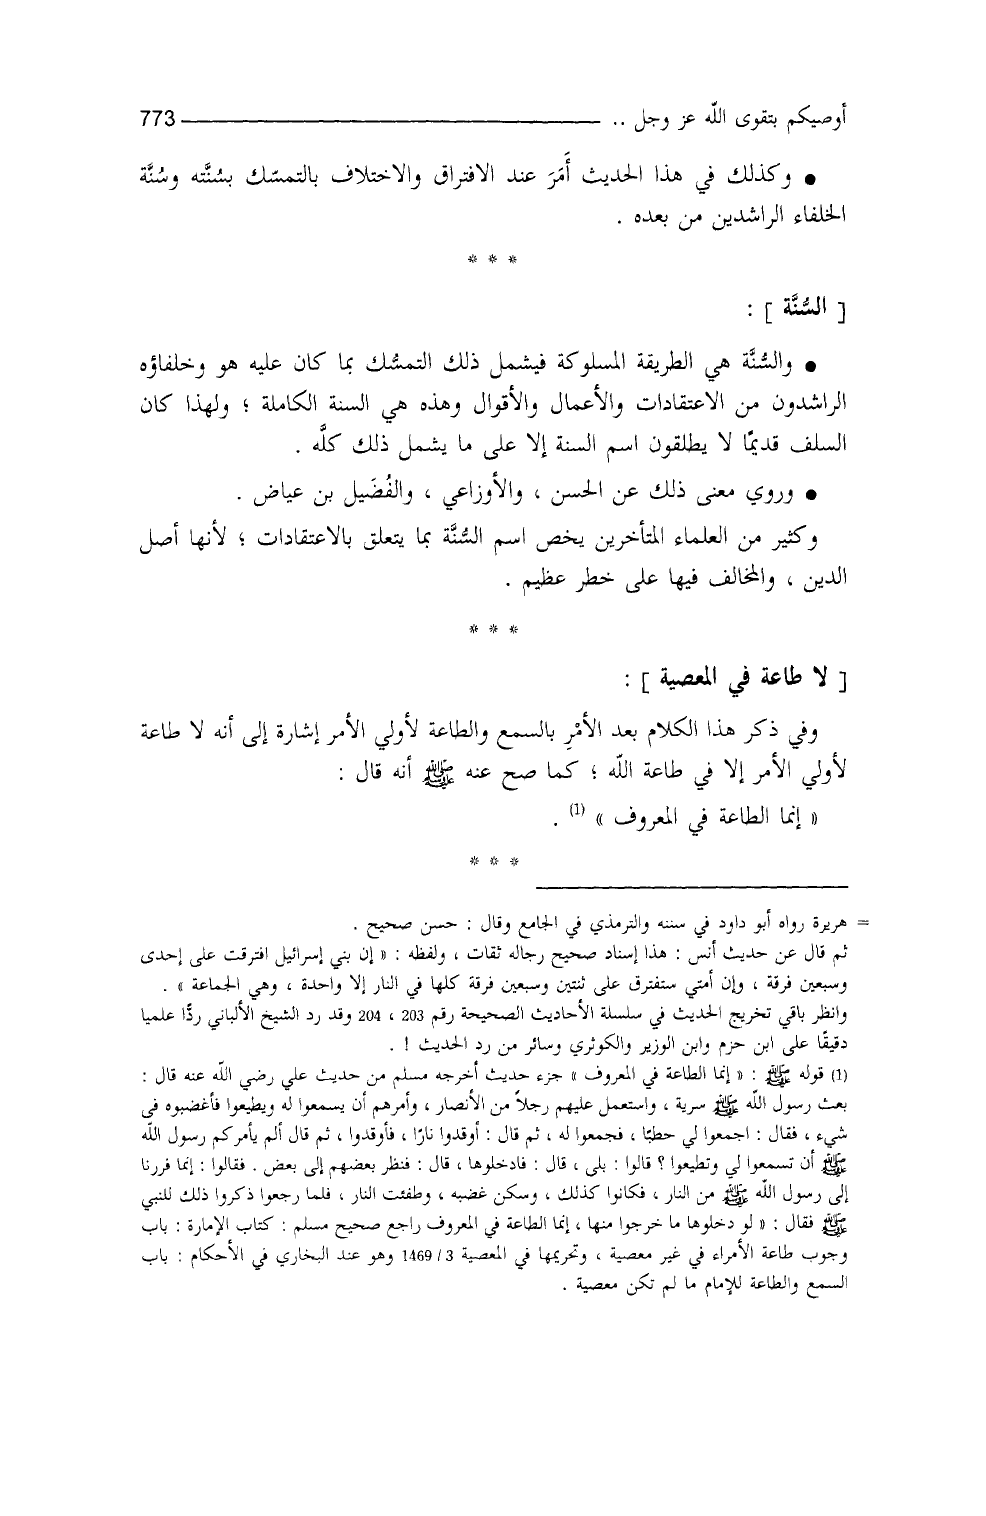 أوصيكم بتقوى الله عز وجل .. 773
● وكذلك في هذا الحديث أَمَرَ عند الافتراق والاختلاف بالتمسّك بسُنَّته وسُنَّة
الخلفاء الراشدين من بعده .
* * *
[ السُّنَّة ] :
● والسُّنَّة هي الطريقة المسلوكة فيشمل ذلك التمسُّك بما كان عليه هو وخلفاؤه
الراشدون من الاعتقادات والأعمال والأقوال وهذه هي السنة الكاملة ؛ ولهذا كان
السلف قديمًا لا يطلقون اسم السنة إلا على ما يشمل ذلك كلَّه .
● وروي معنى ذلك عن الحسن ، والأوزاعي ، والفُضَيل بن عياض .
وكثير من العلماء المتأخرين يخص اسم السُّنَّة بما يتعلق بالاعتقادات ؛ لأنها أصل
الدين ، والمخالف فيها على خطر عظيم .
* * *
[ لا طاعة في المعصية ] :
وفي ذكر هذا الكلام بعد الأمْرِ بالسمع والطاعة لأولي الأمر إشارة إلى أنه لا طاعة
لأولي الأمر إلا في طاعة الله ؛ كما صح عنه ﷺ أنه قال :
« إنما الطاعة في المعروف » (1) .
* * *
= هريرة رواه أبو داود في سننه والترمذي في الجامع وقال : حسن صحيح .
ثم قال عن حديث أنس : هذا إسناد صحيح رجاله ثقات ، ولفظه : « إن بني إسرائيل افترقت على إحدى
وسبعين فرقة ، وإن أمتي ستفترق على ثنتين وسبعين فرقة كلها في النار إلا واحدة ، وهي الجماعة » .
وانظر باقي تخريج الحديث في سلسلة الأحاديث الصحيحة رقم 203 ، 204 وقد رد الشيخ الألباني ردًّا علميا
دقيقًا على ابن حزم وابن الوزير والكوثري وسائر من رد الحديث ! .
(1) قوله ﷺ : « إنما الطاعة في المعروف » جزء حديث أخرجه مسلم من حديث علي رضي الله عنه قال :
بعث رسول الله ﷺ سرية ، واستعمل عليهم رجلاً من الأنصار ، وأمرهم أن يسمعوا له ويطيعوا فأغضبوه في
شيء ، فقال : اجمعوا لي حطبًا ، فجمعوا له ، ثم قال : أوقدوا نارًا ، فأوقدوا ، ثم قال ألم يأمركم رسول الله
ﷺ أن تسمعوا لي وتطيعوا ؟ قالوا : بلى ، قال : فادخلوها ، قال : فنظر بعضهم إلى بعض . فقالوا : إنما فررنا
إلى رسول الله ﷺ من النار ، فكانوا كذلك ، وسكن غضبه ، وطفئت النار ، فلما رجعوا ذكروا ذلك للنبي
ﷺ فقال : « لو دخلوها ما خرجوا منها ، إنما الطاعة في المعروف راجع صحيح مسلم : كتاب الإمارة : باب
وجوب طاعة الأمراء في غير معصية ، وتحريمها في المعصية 3 / 1469 وهو عند البخاري في الأحكام : باب
السمع والطاعة للإمام ما لم تكن معصية .